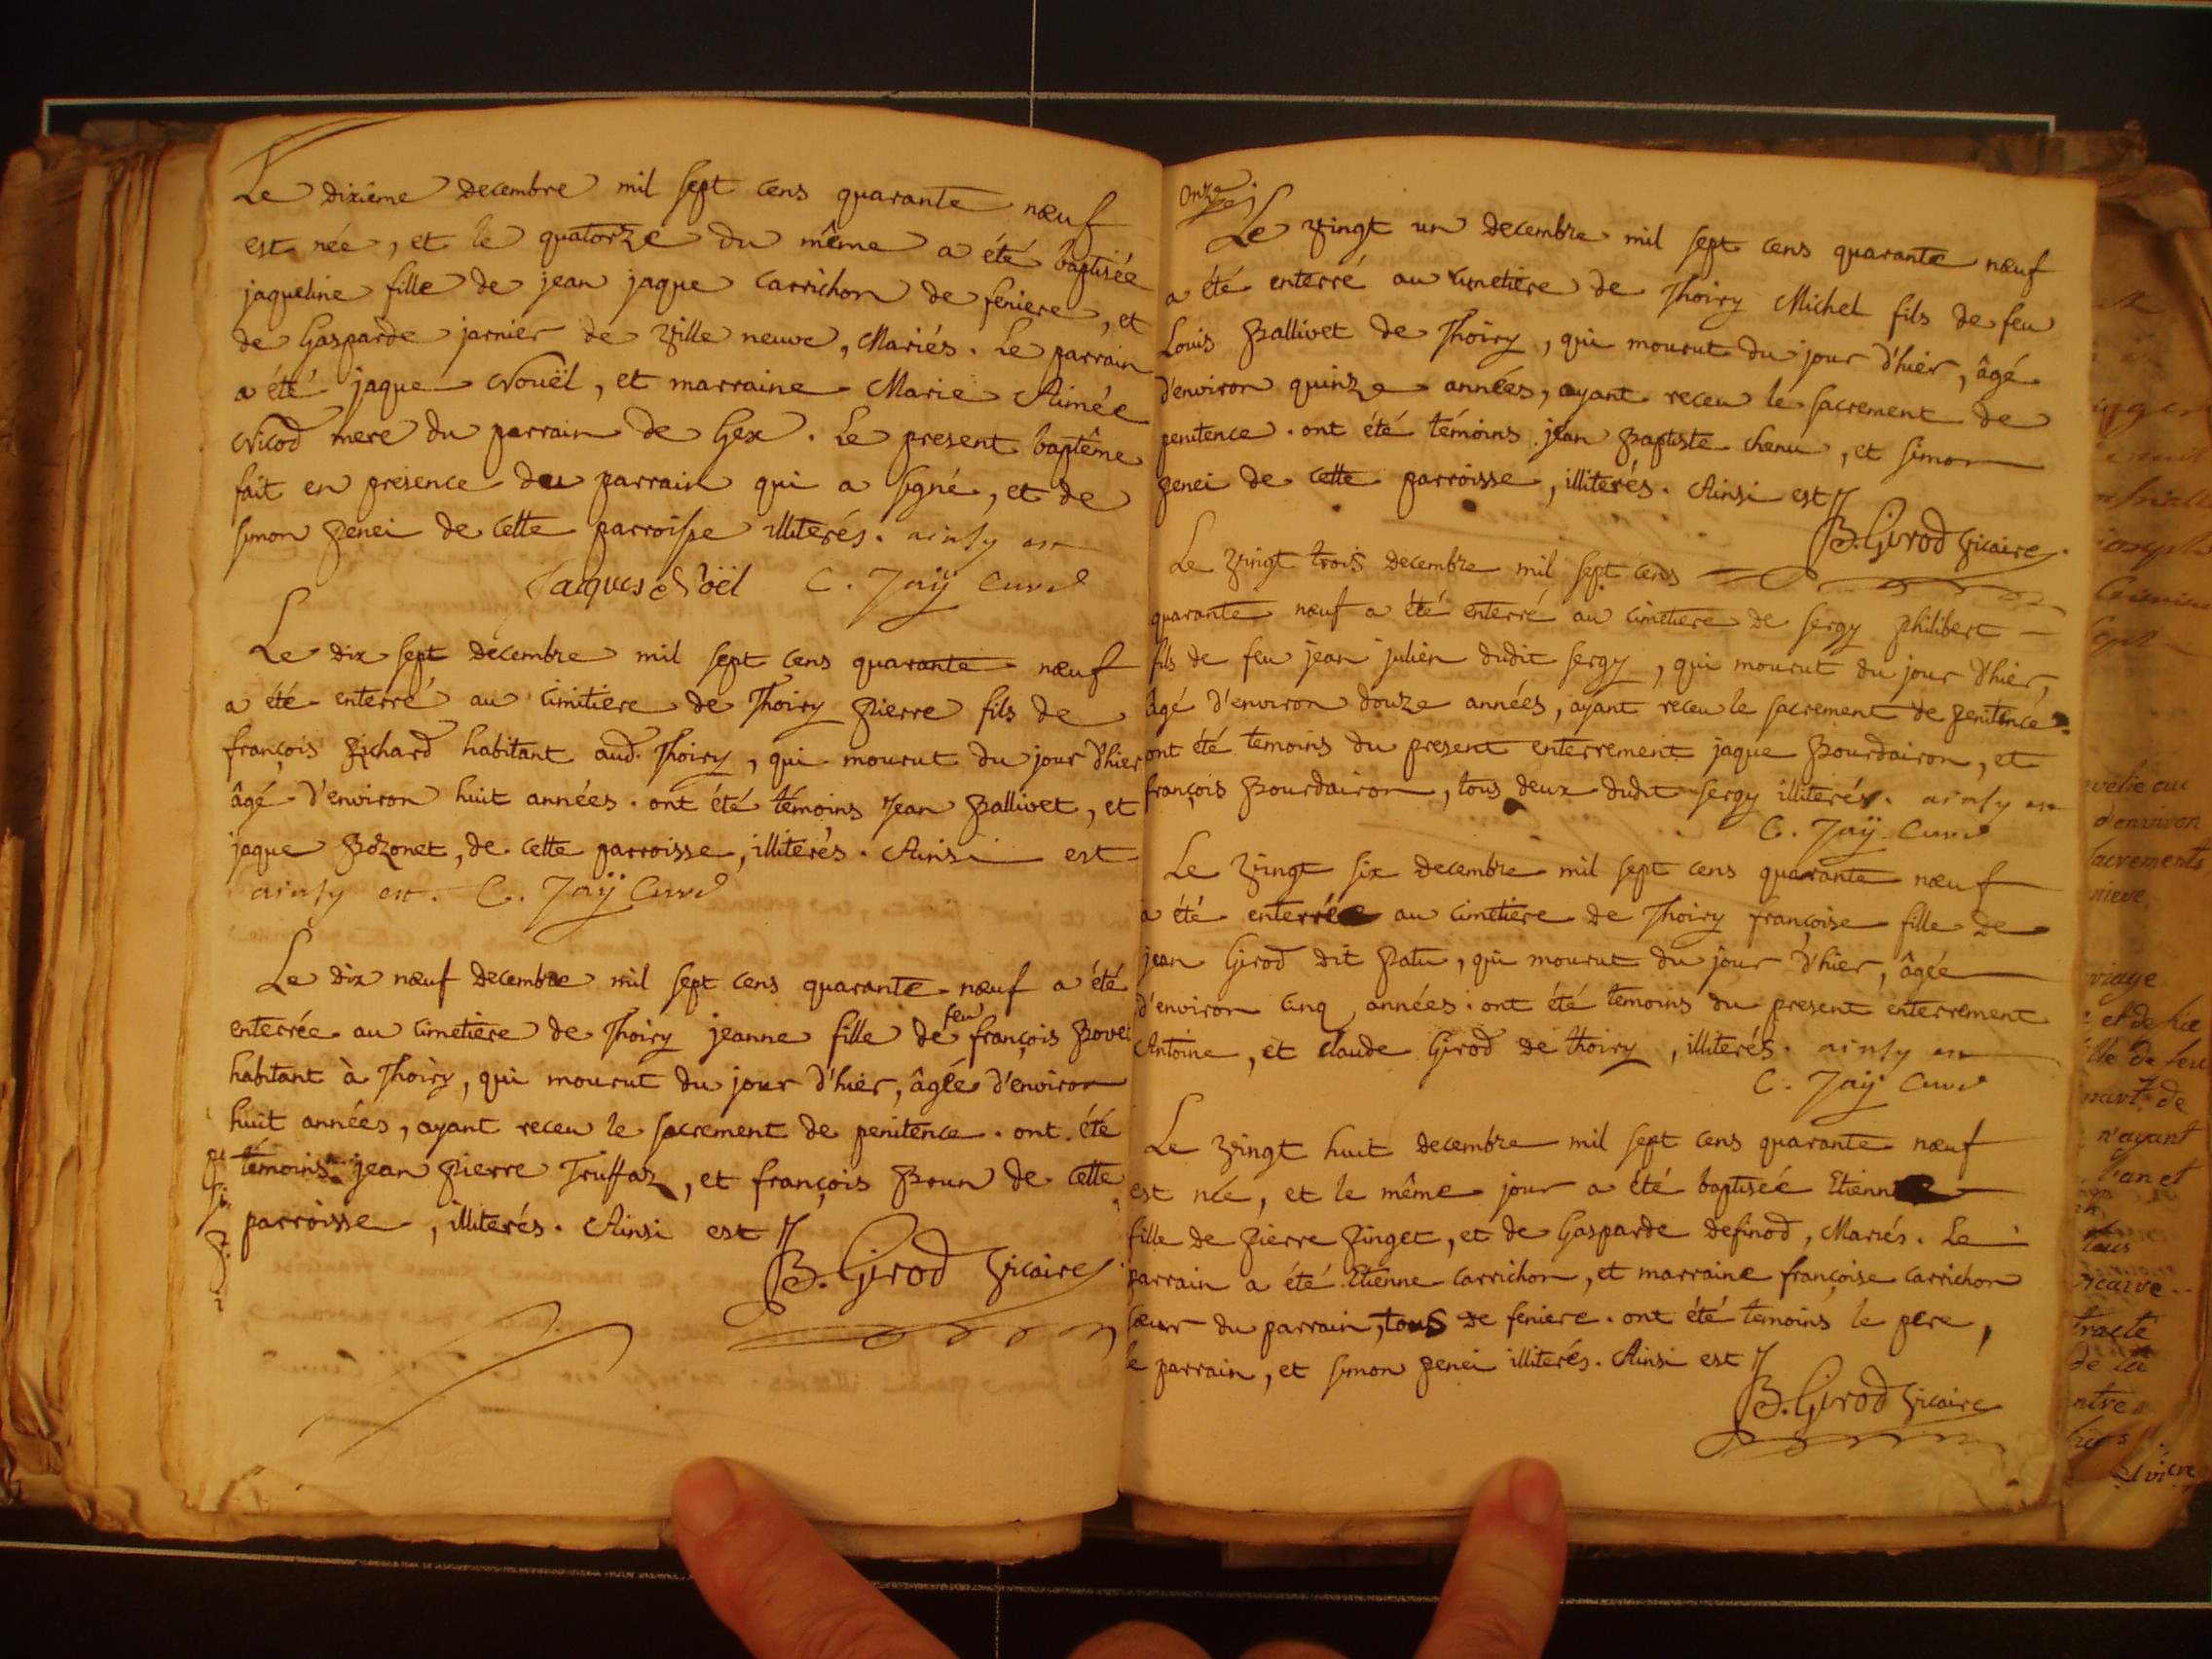 Le dixiéme decembre mil sept cens quarante nœuf
est née, et le quatorze du même a été baptisée
jaqueline fille de jean jaque Carrichon de feniere, et
de Gasparde jarnier de Ville neuve, Mariés. Le parrain
a été jaque Nouël, et marraine Marie Aimée
Nicod mere du parrain de Gex. Le present baptême
fait en presence du parrain qui a signé, et de
simon penei de cette parroisse illiterés. ainsy est
Jaques Noël C. Jaÿ Curé
Le dix sept decembre mil sept cens quarante nœuf
a été enterré au cimitiere de Thoiry Pierre fils de
françois Richard habitant aud. Thoiry, qui mourut du jour d'hier
âgé d'environ huit années. ont été témoins Jean Ballivet, et
jaque Bozonet, de cette parroisse, illiterés. Ainsi est
ainsy est. C. Jaÿ Curé
Le dix nœuf decembre mil sept cens quarante nœuf a été
enterrée au cimetiere de Thoiry jeanne fille de feu françois Bovet
habitant à Thoiry, qui mourut du jour d'hier, âgée d'environ
huit années, ayant receu le sacrement de penitence. ont été
témoins jean Pierre Truffaz, et françois Brun de cette
parroisse, illiterés. Ainsi est
B. Girod Vicaire
Onze
Le Vingt un decembre mil sept cens quarante nœuf
a été enterré au cimetiere de Thoiry Michel fils de feu
Louis Ballivet de Thoiry, qui mourut du jour d'hier, âgé
d'environ quinze années, ayant receu le sacrement de
penitence. ont été témoins jean Baptiste chenu, et simon
penei de cette parroisse, illiterés. Ainsi est
B. Girod Vicaire
Le Vingt trois decembre mil sept cens
quarante nœuf a été enterré au cimetiere de sergy philibert
fils de feu jean julien dudit sergy, qui mourut du jour d'hier,
âgé d'environ douze années, ayant receu le sacrement de penitence.
ont été temoins du present enterrement jaque Bourdairon, et
françois Bourdairon, tous deux dudit sergy illiterés. ainsy est
C. Jaÿ Curé
Le Vingt six decembre mil sept cens quarante nœuf
a été enterrée au cimetiere de Thoiry françoise fille de
jean Girod dit Patu, qui mourut du jour d'hier, âgée
d'environ cinq années. ont été temoins du present enterrement
Antoine, et claude Girod de thoiry, illiterés. ainsy est
C. Jaÿ Curé
Le Vingt huit decembre mil sept cens quarante nœuf
est née, et le même jour a été baptisée Etienne
fille de Pierre Pinget, et de Gasparde definod, Mariés. Le
parrain a été Etienne Carrichon, et marraine françoise Carrichon
sœur du parrain, tous de feniere. ont été temoins le pere,
le parrain, et simon penei illiterés. Ainsi est
B. Girod Vicaire
velie au
d'environ
sacrements
nieve,
riage
et de hie
lle de feu
n'ayant
Vicaire
tracté
de la